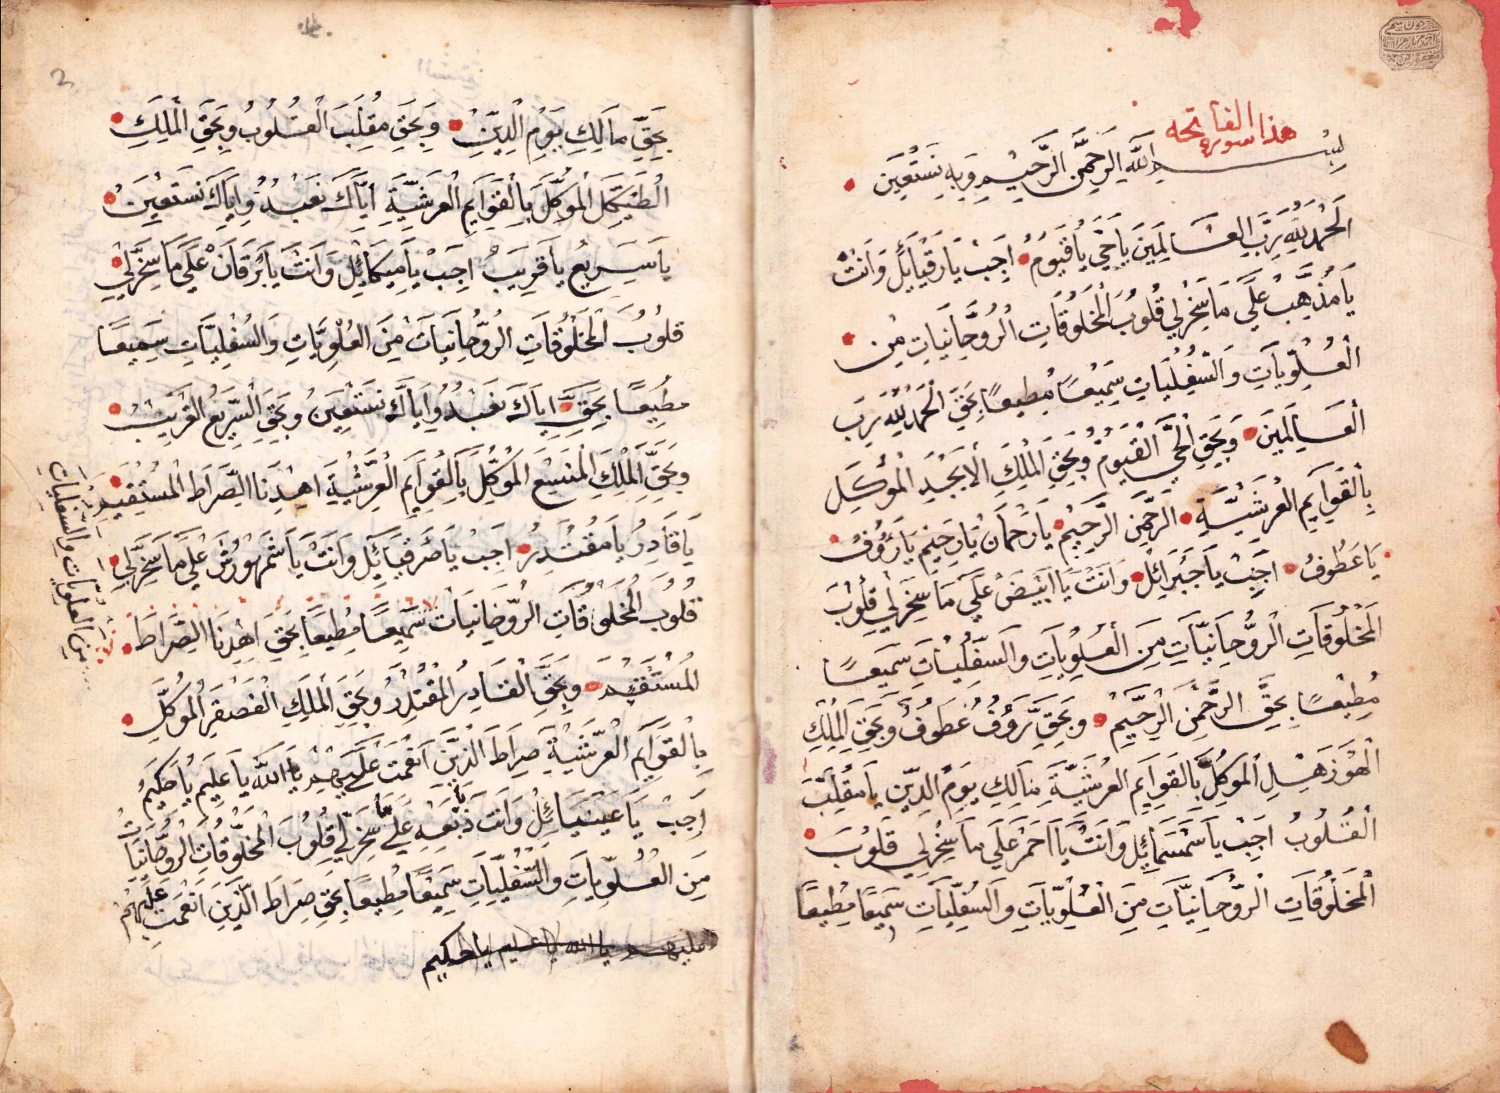 هذا سورة الفاتحه
بسم الله الرحمن الرحيم وبه نستعين
الحمد لله رب العالمين يا حي يا قيوم اجب يا رقيائل وانت
يا مذهب علي ما سخر لي قلوب المخلوقات الروحانيات من
العلويات والسفليات سميعا مطيعا بحق الحمد لله رب
العالمين وبحق الحي القيوم وبحق الملك الابجد الموكل
بالقوايم العرشية الرحمن الرحيم يا رحمان يا رحيم يا رؤوف
يا عطوف اجب يا جبرائل وانت يا ابيض علي ما سخر لي قلوب
المخلوقات الروحانيات من العلويات والسفليات سميعا
مطيعا بحق الرحمن الرحيم وبحق رؤوف عطوف وبحق الملك
الهوزهل الموكل بالقوايم العرشية مالك يوم الدين يا مقلب
القلوب اجب يا سمسمائل وانت يا احمر علي ما سخر لي قلوب
المخلوقات الروحانيات من العلويات والسفليات سميعا مطيعا
بحق مالك يوم الدين وبحق مقلب القلوب وبحق الملك
الطيكل الموكل بالقوايم العرشية اياك نعبد واياك نستعين
يا سريع يا قريب اجب يا ميكائل وانت يا برقان علي ما سخر لي
قلوب المخلوقات الروحانيات من العلويات والسفليات سميعا
مطيعا بحق اياك نعبد واياك نستعين وبحق السريع القريب
وبحق الملك المنسع الموكل بالقوايم العرشية اهدنا الصراط المستقيم
يا قادر يا مقتدر اجب يا صرفيائل وانت يا شمهورش علي ما سخر لي
قلوب المخلوقات الروحانيات سميعا مطيعا بحق اهدنا الصراط
من العلويات والسفليات
المستقيم وبحق القادر المقتدر وبحق الملك الفصقر الموكل
بالقوايم العرشية صراط الذين انعمت عليهم يا الله يا عليم يا حكيم
اجب يا عينيائل وانت يا ذبعه علي ما سخر لي قلوب المخلوقات الروحانيات
من العلويات والسفليات سميعا مطيعا بحق صراط الذين انعمت عليهم
عليهم يا الله يا عليم يا حكيم